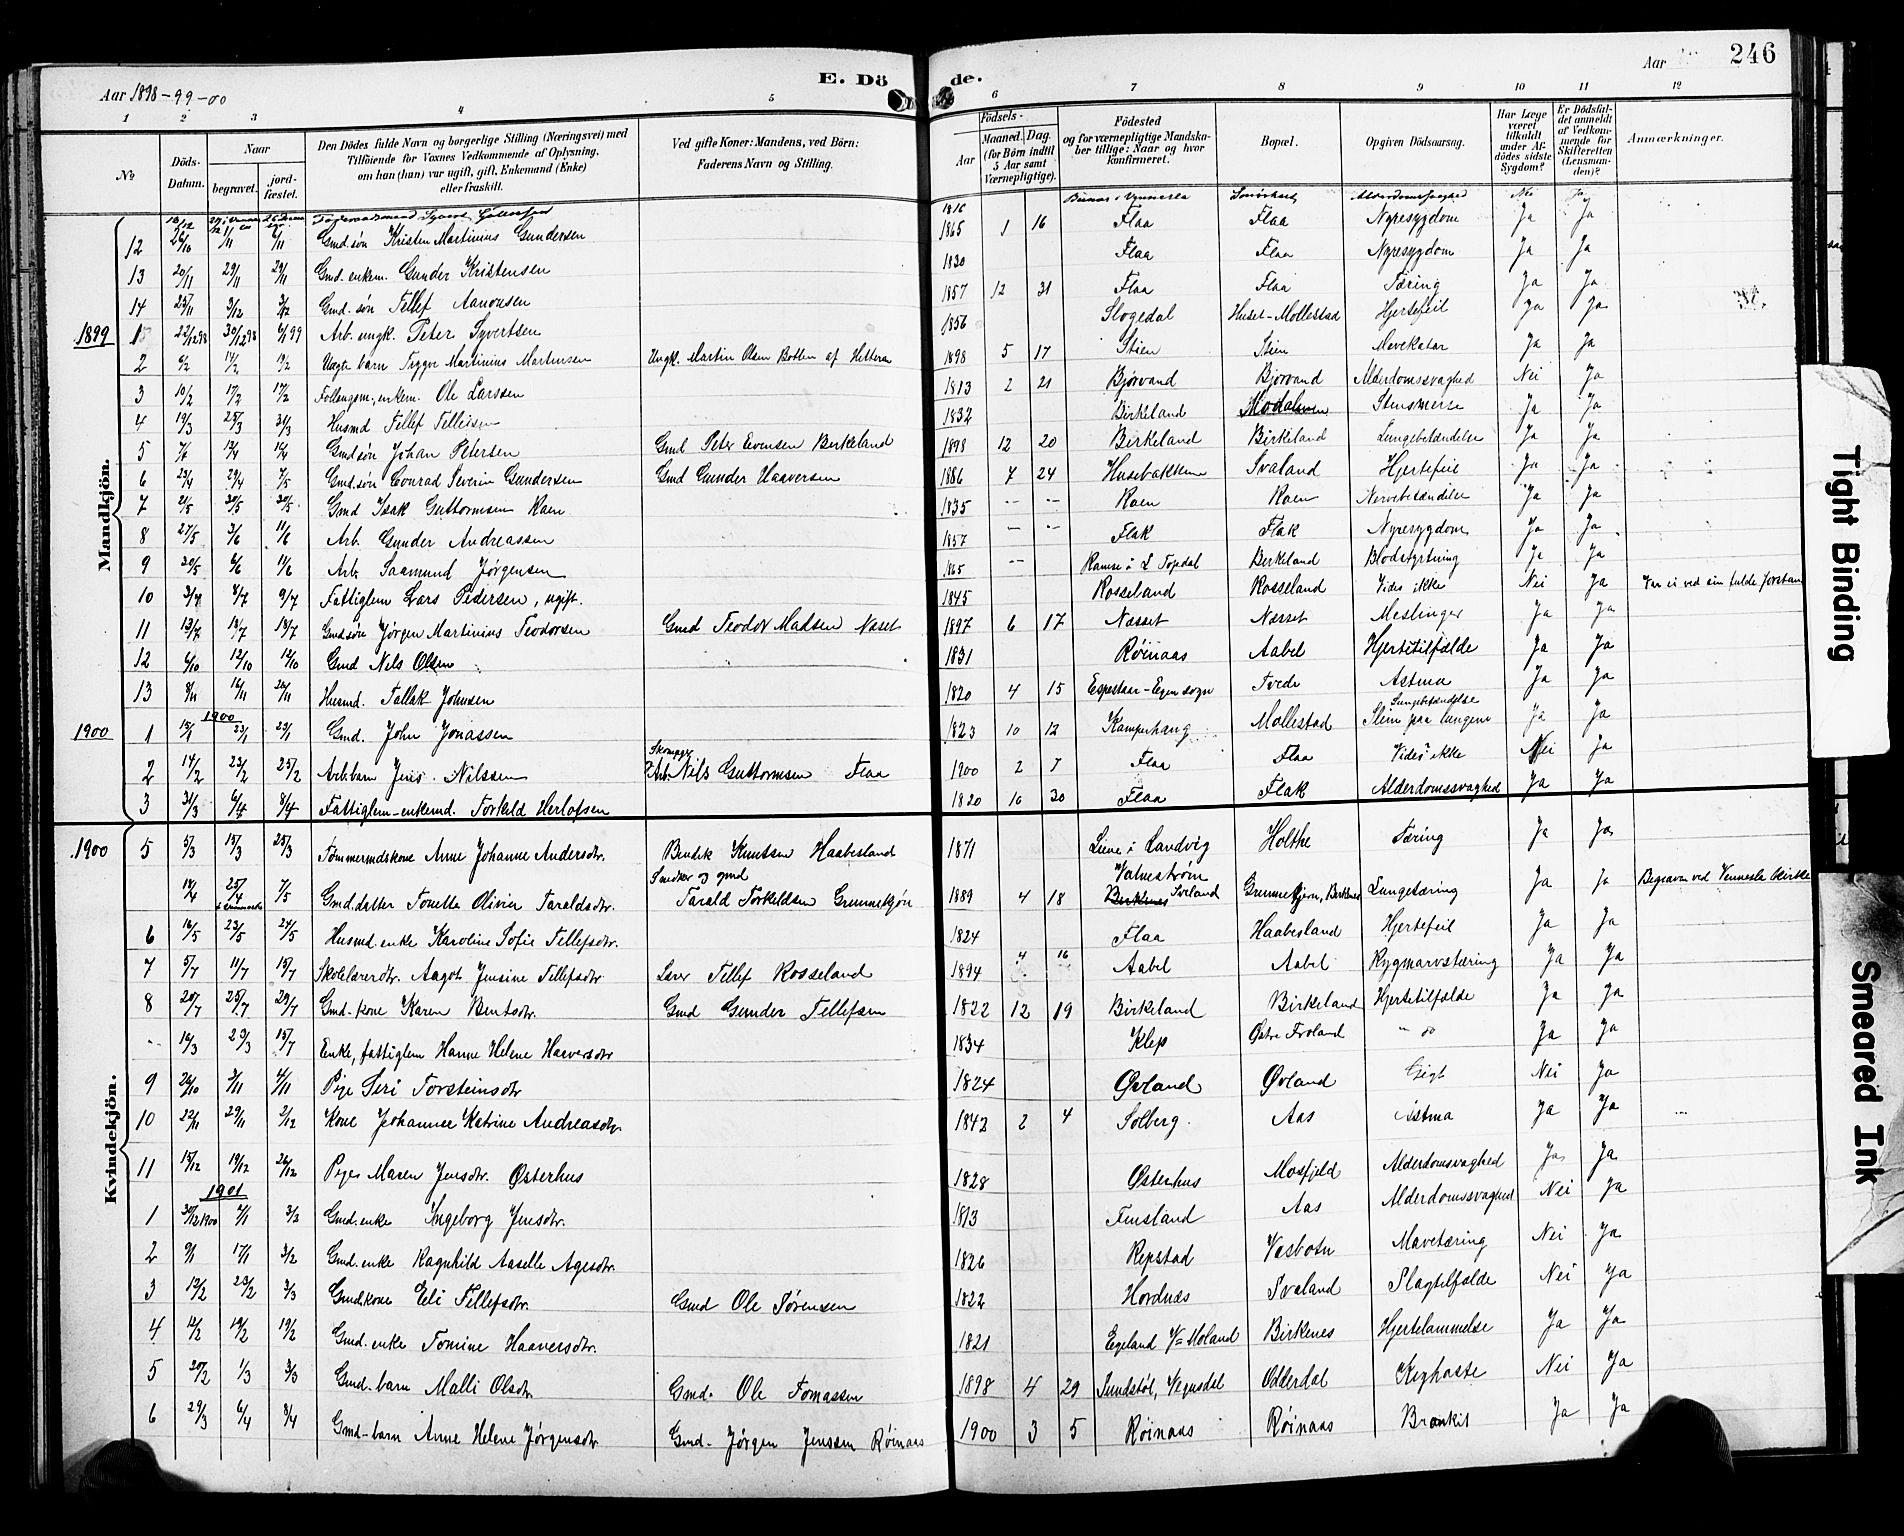 246
E. Dö de.
Aar 1898-99-00
Aar
1 2 3 4 5 6 7 8 9 10 11 12
No
Döds-Datum.
Naar
begravet.
jord-fæstet.
Den Dödes fulde Navn og borgerlige Stilling (Næringsvei) med Tilföiende for Voxnes Vedkommende af Oplysning, om han (hun) var ugift, gift, Enkemand (Enke) eller fraskilt.
Ved gifte Koner: Mandens, ved Börn: Faderens Navn og Stilling.
Födsels-
Aar
Maaned. Dag.
(for Børn indtil 5 Aar samt Værnepligtige).
Födested og for værnepligtige Mandskaber tillige: Naar og hvor konfirmeret.
Bopæl.
Opgiven Dödsaarsag.
Har Læge været tilkaldt under Afdödes sidste Sygdom?
Er Dödsfaldet anmeldt af Vedkommende for Skifteretten (Lensmanden)?
Anmærkninger.
Mandkjön.
1816 Alderdomssvaghed Nei Ja
12 26/10 Gmd. søn Kristen Martinius Gundersen 1865 1 16 Flaa Flaa Nyresygdom Ja Ja
13 20/11 29/11 29/11 Gmd. enkem. Gunder Kristensen 1830 Flaa Flaa Nyresygdom Ja Ja
14 25/11 3/12 3/12 Gmd. søn Tellef Aanonsen 1857 12 31 Flaa Flaa Tæring Ja Ja
1899 22/12 98 30/12 98 6/1 99 Arb. ungk. Peter Syvertsen 1856 Slogedal Huset-Mollestad Hjertefeil Ja Ja
2 6/2 Uægte barn Tryggve Martinius Martinsen Ungk. Martin Olsen Botten af Hitterø 1898 5 17 Stien Stien Mavekatar Ja Ja
3 10/2 17/2 17/2 Follaugsm., enkem. Ole Larssen 1813 2 21 Bjørvand Bjorvand Alderdomssvaghed Nei Ja
4 19/3 25/3 31/3 Husmd Tellef Tellefsen 1832 Birkeland Modalsveen Stensmerte Ja Ja
5 7/4 Gmd søn Johan Petersen Gmd Peter Evensen Berkeland 1898 12 20 Birkeland Birkeland Lungebetændelse Ja Ja
6 23/4 29/4 7/5 Gmd. søn Conrad Severin Gundersen Gmd Gunder Haaversen 1886 7 24 Husebakken Svaland Hjertefeil Ja Ja
7 21/5 30/5 30/5 Gmd Isak Guttormsen Raen 1835 -- -- Raen Raen Nervebetændelse Ja Ja
8 27/5 3/6 11/6 Arb. Gunder Andreassen 1857 -- -- Flak Flak Nyresygdom Ja Ja
9 20/5 6/6 11/6 Arb. Saamund Jørgensen 1865 -- Ramse i Ø. Topdal Berkeland Blodstyrtning Ja Ja
10 3/7 8/7 9/7 Fattiglem Lars Pedersen, ugift. 1845 Rosseland Rosseland Vides ikke Nei Ja Var ei ved sin fulde forstan
11 13/7 18/7 18/7 Gmd søn Jørgen Martinius Teodorsen Gmd Teodor Madsen Næset 1897 6 17 Næsset Næsset Meslinger Ja Ja
12 6/10 12/10 12/10 Gmd Nils Olsen 1831 Røinaas Aabel Hjertetilfælde Ja Ja
13 8/11 16/11 26/11 Husmd. Tallak Johnsen 1820 4 15 Espestaar-Egen sogn Tvede Astma Ja Ja
1900
1900 1 15/1 23/1 29/1 Gmd. John Jonassen 1823 10 12 Kamperhaug Mollestad Lungebetændelse Slim paa lungene Ja Ja
2 14/2 23/2 25/2 Arb. barn Jens Nilssen Arb. Nils Guttormsen Flaa 1900 2 7 Flaa Flaa Vides ikke Nei Ja
3 31/3 6/4 8/4 Fattiglem-enkemd. Torkeld Herlofsen 1820 10 30 Flaa Flak Alderdomssvaghed Ja Ja
Kvindekjön.
1900 5 5/3 15/3 25/3 Tømmermdskone Anne Johanne Andersdtr. Bendik Knutsen Haabesland 1871 Liene i Landvig Holthe Tæring Ja Ja
25/4 7/5 Gmd. datter Tonette Olivie Taraldsdtr. Snedker og gmd Tarald Torkeldsen Grummekjøn 1889 4 18 Valnestrøm Birkenes Sveland Grummekjern, Birkenes Lungetæring Ja Ja Begraven ved Vennesla kirke
6 16/5 23/5 24/5 Husmd. enke Karoline Sofie Tellefsdtr. 1824 Flaa Haabesland Hjertefeil Ja Ja
7 5/7 11/7 15/7 Skolelærerdtr. Aagot Jensine Tellefsdtr Lærer Tellef Rosseland 1894 4 16 Aabel Aabel Rygmarvstæring Ja Ja
8 20/7 25/7 29/7 Gmd-kone Karen Bentsdtr. Gmd Gunder Tellefsen 1822 12 19 Birkeland Birkeland Hjertetilfælde Ja Ja
-- 16/3 23/3 15/7 Enke, fattiglem Hanne Helene Haaversdtr 1834 Klep Østre Froland Ja Ja
9 26/10 3/11 4/11 Pige Seri Torsteinsdtr 1824 Øvland Øvland Gigt Nei Ja
10 22/11 29/11 2/12 Kone Johanne Katrine Andreasdtr 1842 2 4 Solberg Aas Astma Ja Ja
11 15/12 19/12 26/12 Pige Maren Jensdtr. Østerhus 1828 Østerhus Mosfjeld Alderdomsvaghed Ja Ja
1901
1 30/12 1900 7/1 3/2 Gmd. enke Ingeborg Jensdtr. 1813 Finsland Aas Alderdomssvaghed Nei Ja
2 9/1 17/1 3/2 Gmd. enke Ragnhild Aaselle Agesdtr. 1826 Repstad Væsbotn Mavetæring Nei Ja
3 12/2 23/2 3/3 Gmdkone Eli Tellefsdtr. Gmd Ole Sørensen 1822 Hordnæs Svaland Slagtilfælde Nei Ja
4 12/2 19/2 19/2 Gmd. enke Tomine Haaversdtr. 1821 Egeland V/=Moland Birkenes Hjertelammelse Ja Ja
5 20/2 1/3 3/3 Gmd. barn Malli Olsdtr. Gmd. Ole Tomassen 1898 4 29 Sundstøl, Vegusdal Odderdal Kighoste Nei Ja
6 29/3 6/4 8/4 Gmd-barn Anne Helene Jørgensdtr Gmd. Jørgen Jenssen Røinaas 1900 3 5 Røinaas Røinaas Bronkit Ja Ja
Tight Binding
Smeared Ink